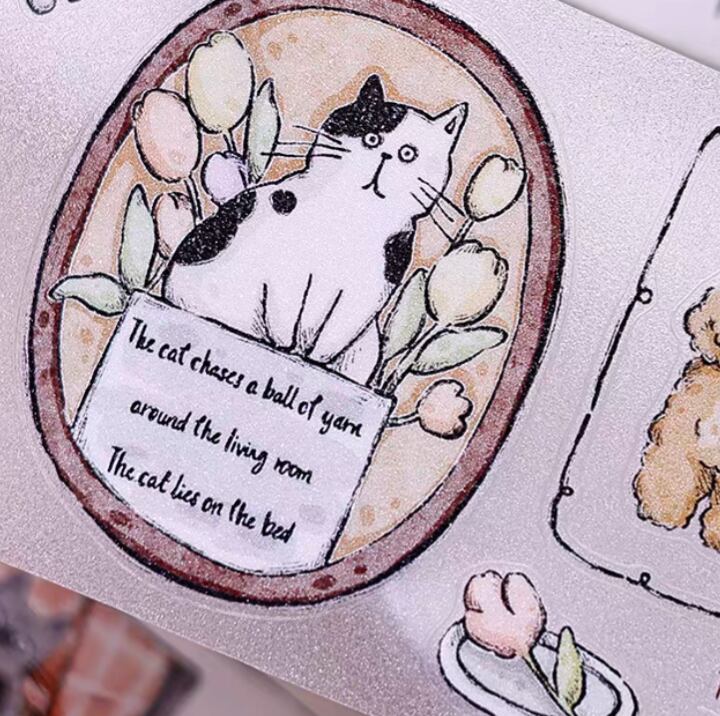 The cat chases a ball of yarn
around the living room
The cat lies on the bed